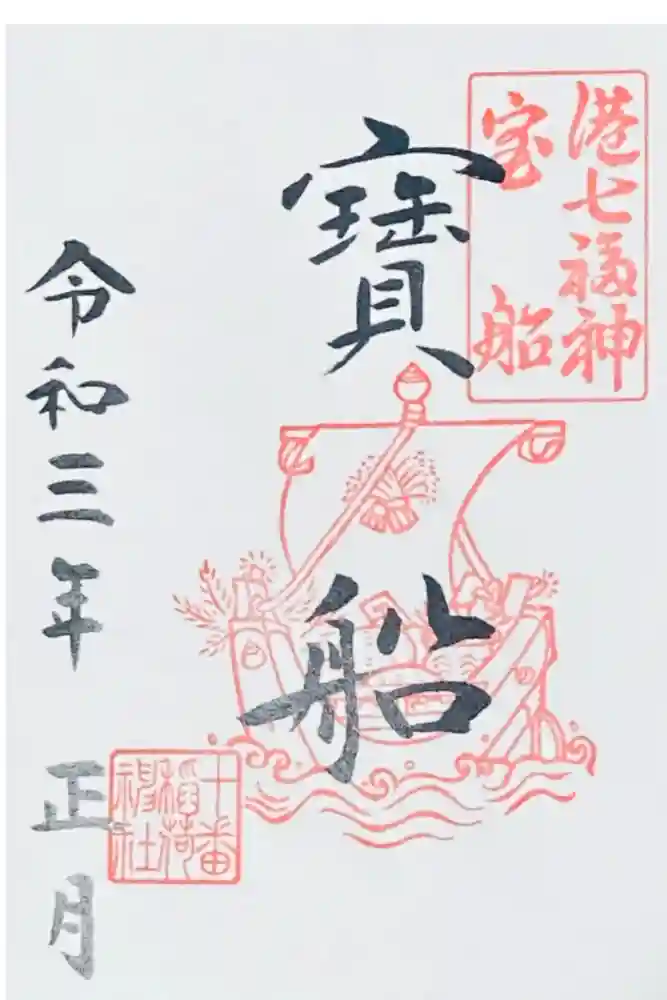 港七福神
宝船
寶船
令和三年 正月
十番
稲荷
神社